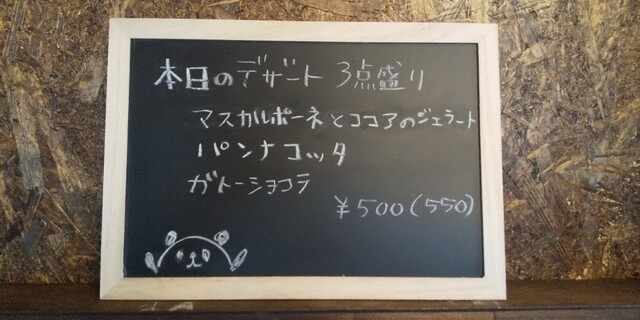 本日のデザート 3点盛り
マスカルポーネとココアのジェラート
パンナコッタ
ガトーショコラ
¥500(550)